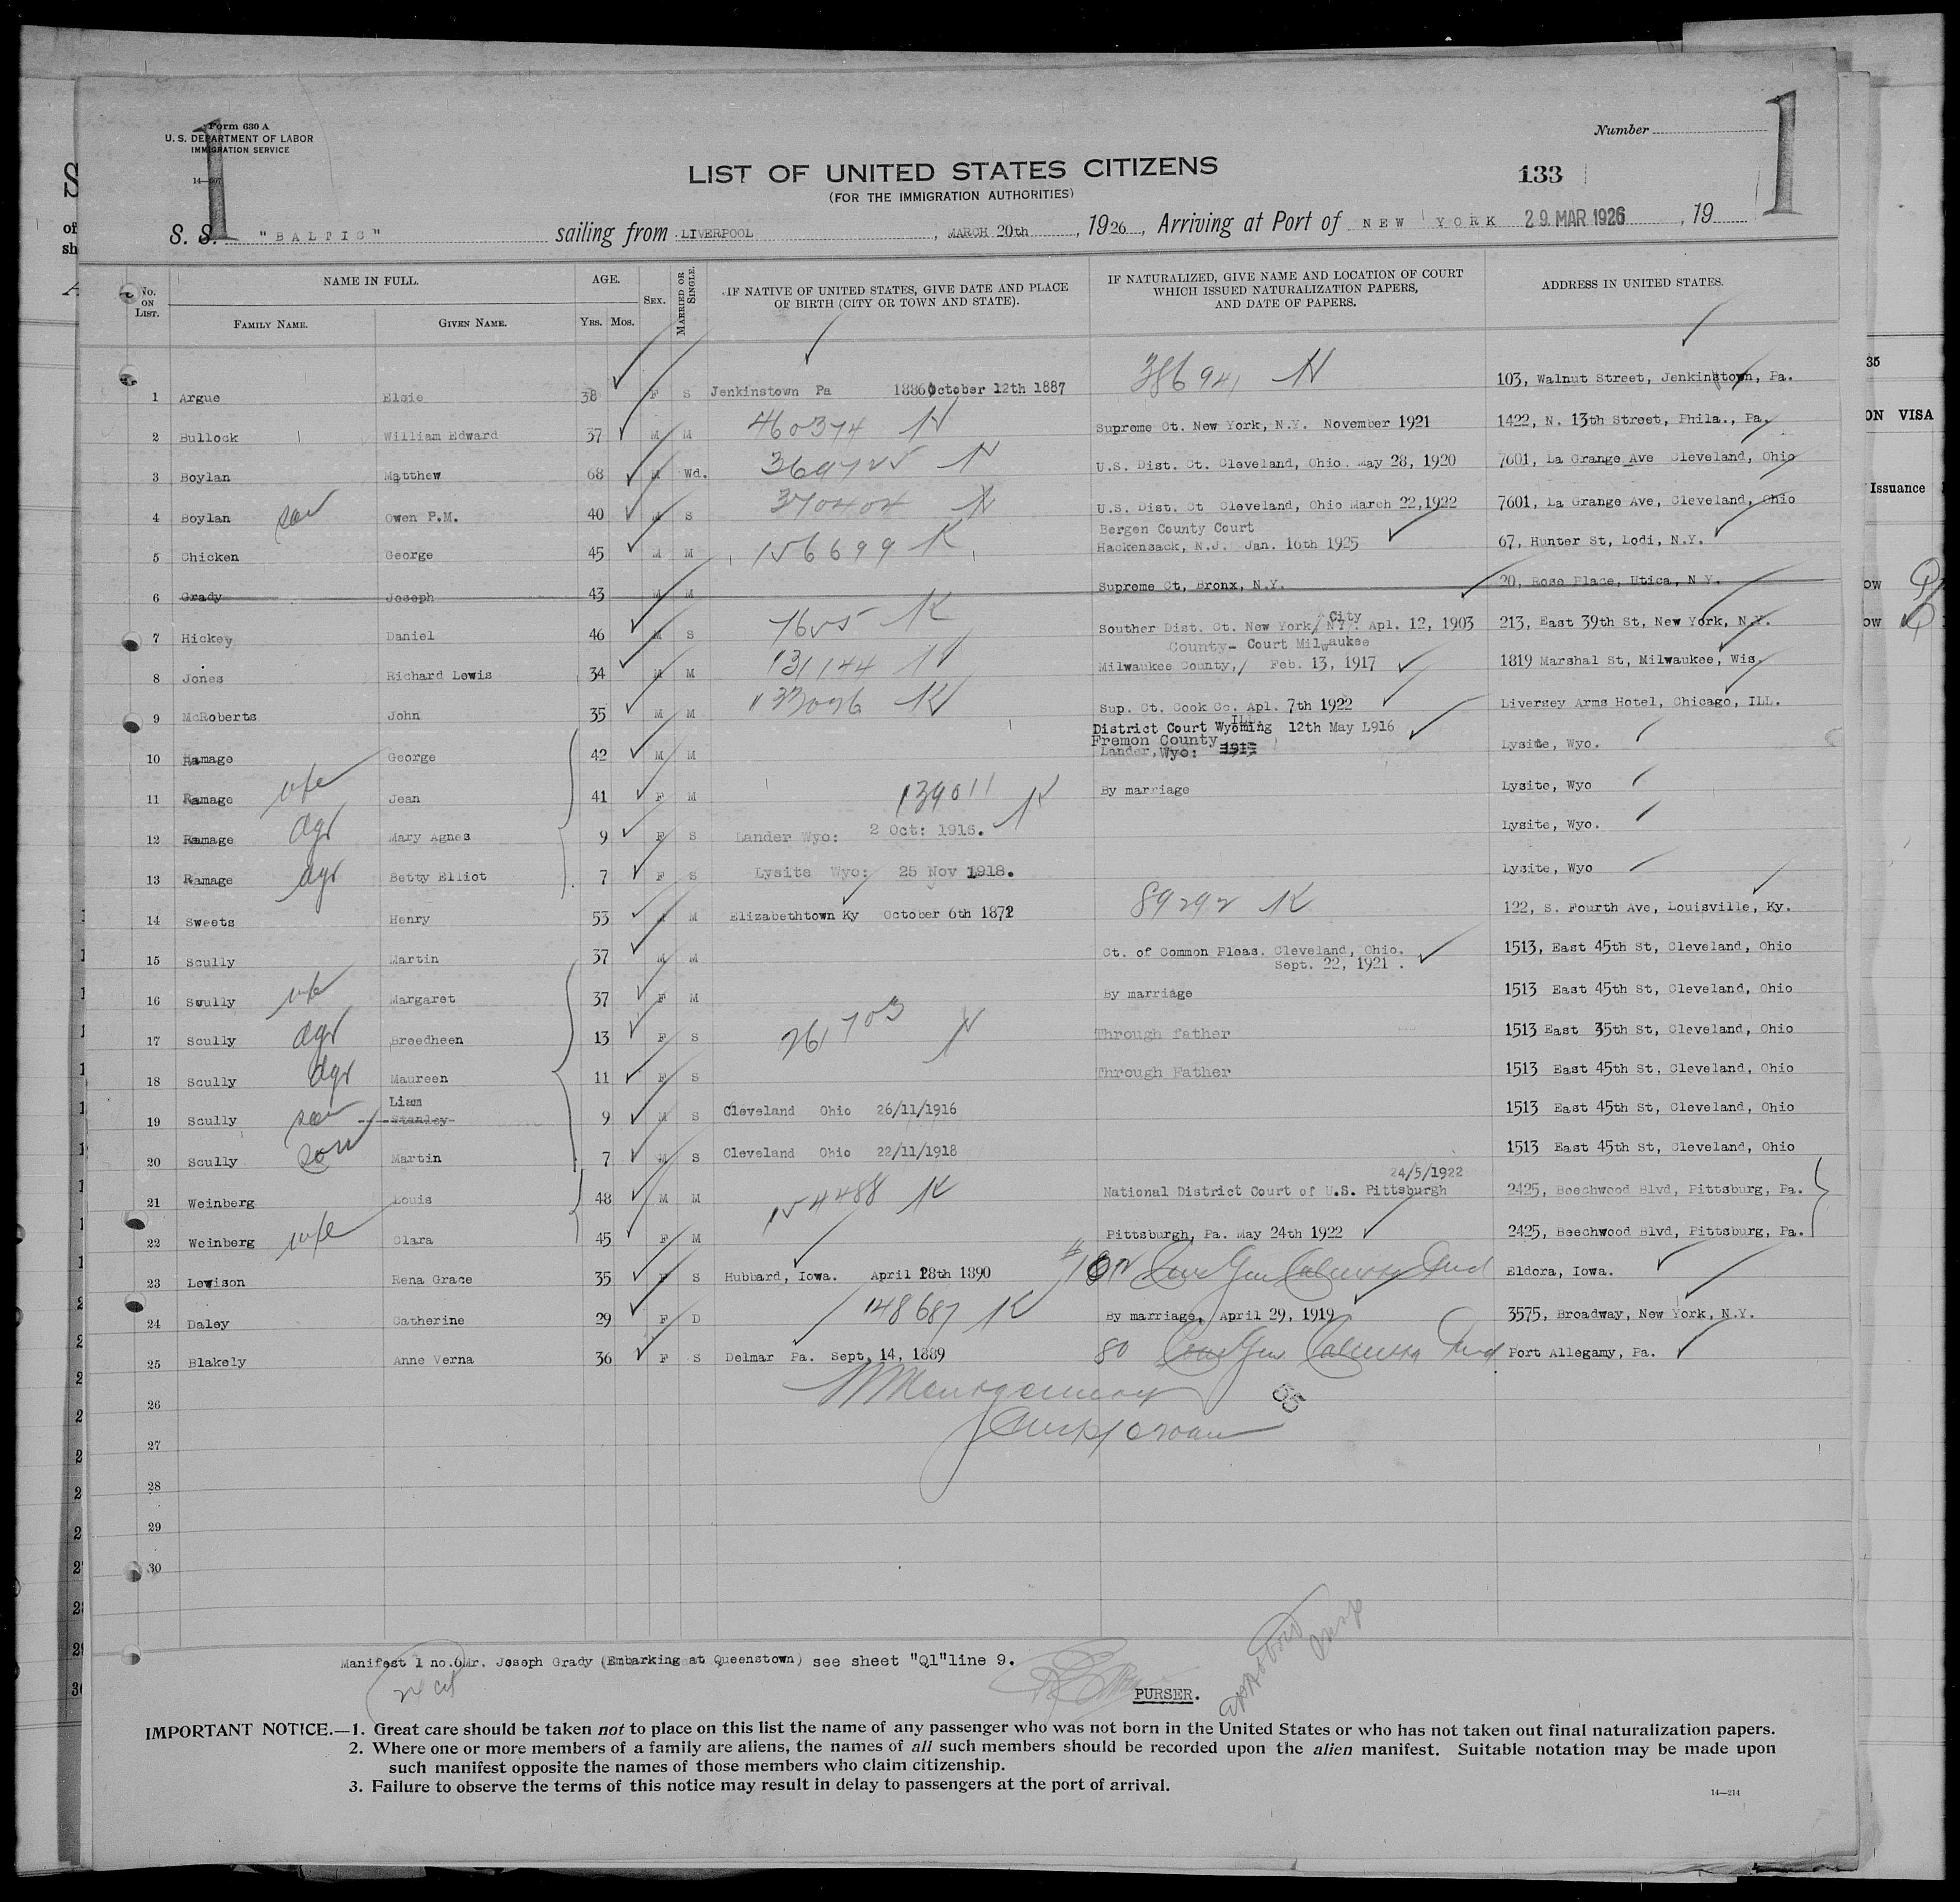 1
Form 630 A
U. S. DEPARTMENT OF LABOR
IMMIGRATION SERVICE
Number
1
LIST OF UNITED STATES CITIZENS
(FOR THE IMMIGRATION AUTHORITIES)
133
S. S. "BALTIC" sailing from LIVERPOOL, MARCH 20th, 1926, Arriving at Port of NEW YORK 29 MAR 1926, 19
No. ON LIST.
NAME IN FULL.
FAMILY NAME. GIVEN NAME.
AGE.
YRS. MOS.
SEX.
MARRIED OR SINGLE.
IF NATIVE OF UNITED STATES, GIVE DATE AND PLACE OF BIRTH (CITY OR TOWN AND STATE).
IF NATURALIZED, GIVE NAME AND LOCATION OF COURT WHICH ISSUED NATURALIZATION PAPERS, AND DATE OF PAPERS.
ADDRESS IN UNITED STATES.
1 Argue Elsie 38 F S Jenkinstown Pa 1886 October 12th 1887 386941 N 103, Walnut Street, Jenkinstown, Pa.
2 Bullock William Edward 37 M M 460374 N Supreme Ct. New York, N.Y. November 1921 1422, N. 13th Street, Phila., Pa.
3 Boylan Matthew 68 M Wd. 369725 N U.S. Dist. Ct. Cleveland, Ohio. May 28, 1920 7601, La Grange Ave Cleveland, Ohio
4 Boylan son Owen P.M. 40 M S 370404 N U.S. Dist. Ct Cleveland, Ohio March 22,1922 7601, La Grange Ave, Cleveland, Ohio
5 Chicken George 45 M M 156699 K Bergen County Court
Hackensack, N.J. Jan. 16th 1925 67, Hunter St, Lodi, N.Y.
6 Grady Joseph 43 M M Supreme Ct, Bronx, N.Y. 20, Rose Place, Utica, N Y.
7 Hickey Daniel 46 M S 7605 K Souther Dist. Ct. New York/ City N.Y. Apl. 12, 1903 213, East 39th St, New York, N.Y.
County- Court Milwaukee
8 Jones Richard Lewis 34 M M 131144 N Milwaukee County,/ Feb. 13, 1917 1819 Marshal St, Milwaukee, Wis.
9 McRoberts John 35 M M 133026 K Sup. Ct. Cook Co. Apl. 7th 1922 Liversey Arms Hotel, Chicago, ILL.
Ill.
District Court Wyoming 12th May L916
Fremon County
10 Ramage George 42 M M Lander, Wyo: 1917 Lysite, Wyo.
11 Ramage wife Jean 41 F M 139011 N By marriage Lysite, Wyo
12 Ramage dgr Mary Agnes 9 F S Lander Wyo: 2 Oct: 1916. Lysite, Wyo.
13 Ramage dgr Betty Elliot 7 F S Lysite Wyo: 25 Nov 1918. Lysite, Wyo
14 Sweets Henry 53 M M Elizabethtown Ky October 6th 1872 89292 K 122, S. Fourth Ave, Louisville, Ky.
15 Scully Martin 37 M M Ct. of Common Pleas. Cleveland, Ohio. 1513, East 45th St, Cleveland, Ohio
Sept. 22, 1921 .
16 Scully wife Margaret 37 F M By marriage 1513 East 45th St, Cleveland, Ohio
17 Scully dgr Breedheen 13 F S 261703 N Through father 1513 East 35th St, Cleveland, Ohio
18 Scully dgr Maureen 11 F S Through Father 1513 East 45th St, Cleveland, Ohio
Liam
19 Scully son Stanley 9 M S Cleveland Ohio 26/11/1916 1513 East 45th St, Cleveland, Ohio
20 Scully son Martin 7 M S Cleveland Ohio 22/11/1918 1513 East 45th St, Cleveland, Ohio
24/5/1922
21 Weinberg Louis 48 M M 154488 K National District Court of U.S. Pittsburgh 2425, Beechwood Blvd, Pittsburg, Pa.
22 Weinberg wife Clara 45 F M Pittsburgh, Pa. May 24th 1922 2425, Beechwood Blvd, Pittsburg, Pa.
23 Lewison Rena Grace 35 F S Hubbard, Iowa. April 28th 1890 Cons Gen Calcutta Ind Eldora, Iowa.
24 Daley Catherine 29 F D 148687 K By marriage, April 29, 1919 3575, Broadway, New York, N.Y.
25 Blakely Anne Verna 36 F S Delmar Pa. Sept, 14, 1889 80 Cons Gen Calcutta Ind Port Allegamy, Pa.
26
27
28
29
30
Manifest 1 no.6 Mr. Joseph Grady (Embarking at Queenstown) see sheet "Q1" line 9.
PURSER.
IMPORTANT NOTICE.—1. Great care should be taken not to place on this list the name of any passenger who was not born in the United States or who has not taken out final naturalization papers.
2. Where one or more members of a family are aliens, the names of all such members should be recorded upon the alien manifest. Suitable notation may be made upon
such manifest opposite the names of those members who claim citizenship.
3. Failure to observe the terms of this notice may result in delay to passengers at the port of arrival.
14—214
35
ON VISA
Issuance
ow
ow